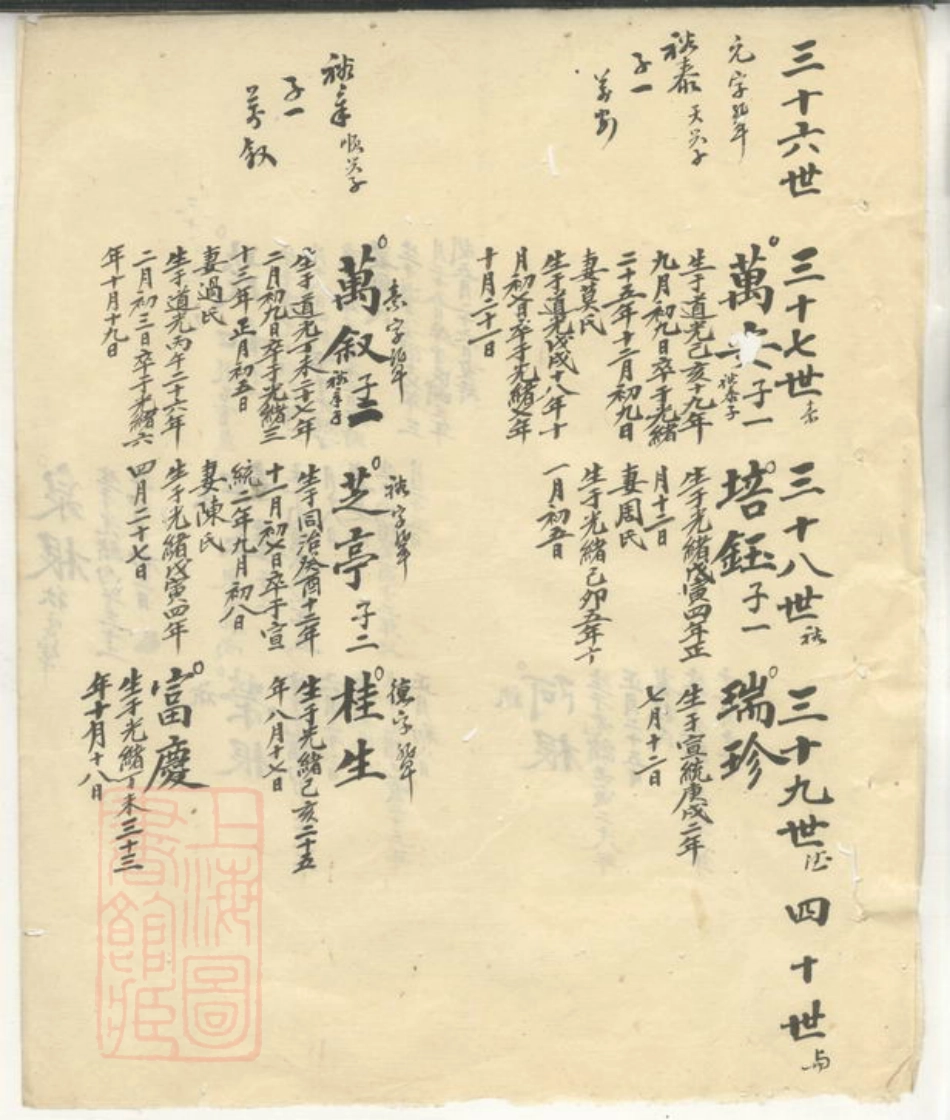 三十六世 三十七世 三十八世 三十九世 四十世
元字
裕泰
子一
萬
子一
生于道光己亥十九年
九月初九日卒于光緒
二十五年十二月初九日
妻莫氏
生于道光戊戌十八年十
月初 日卒于光緒七年
十月二十一日
培鈺子一
生于光緒戊寅四年正
月十二日
妻周氏
生于光緒己卯五年十
一月初五日
瑞珍
生于宣統庚戌二年
七月十二日
子一
萬叙
字
萬叙
生于道光丁未二十七年
二月初九日卒于光緒三
十三年正月初五日
妻過氏
生于道光丙午二十六年
二月初三日卒于光緒六
年十月十九日
字
芝亭子二
生于同治癸酉十二年
十一月初七日卒于宣
統二年九月初八日
妻陳氏
生于光緒戊寅四年
四月二十七日
德字
桂生
生于光緒己亥二十五
年八月十七日
富慶
生于光緒丁未三十三
年十月十八日
上海圖
書館藏